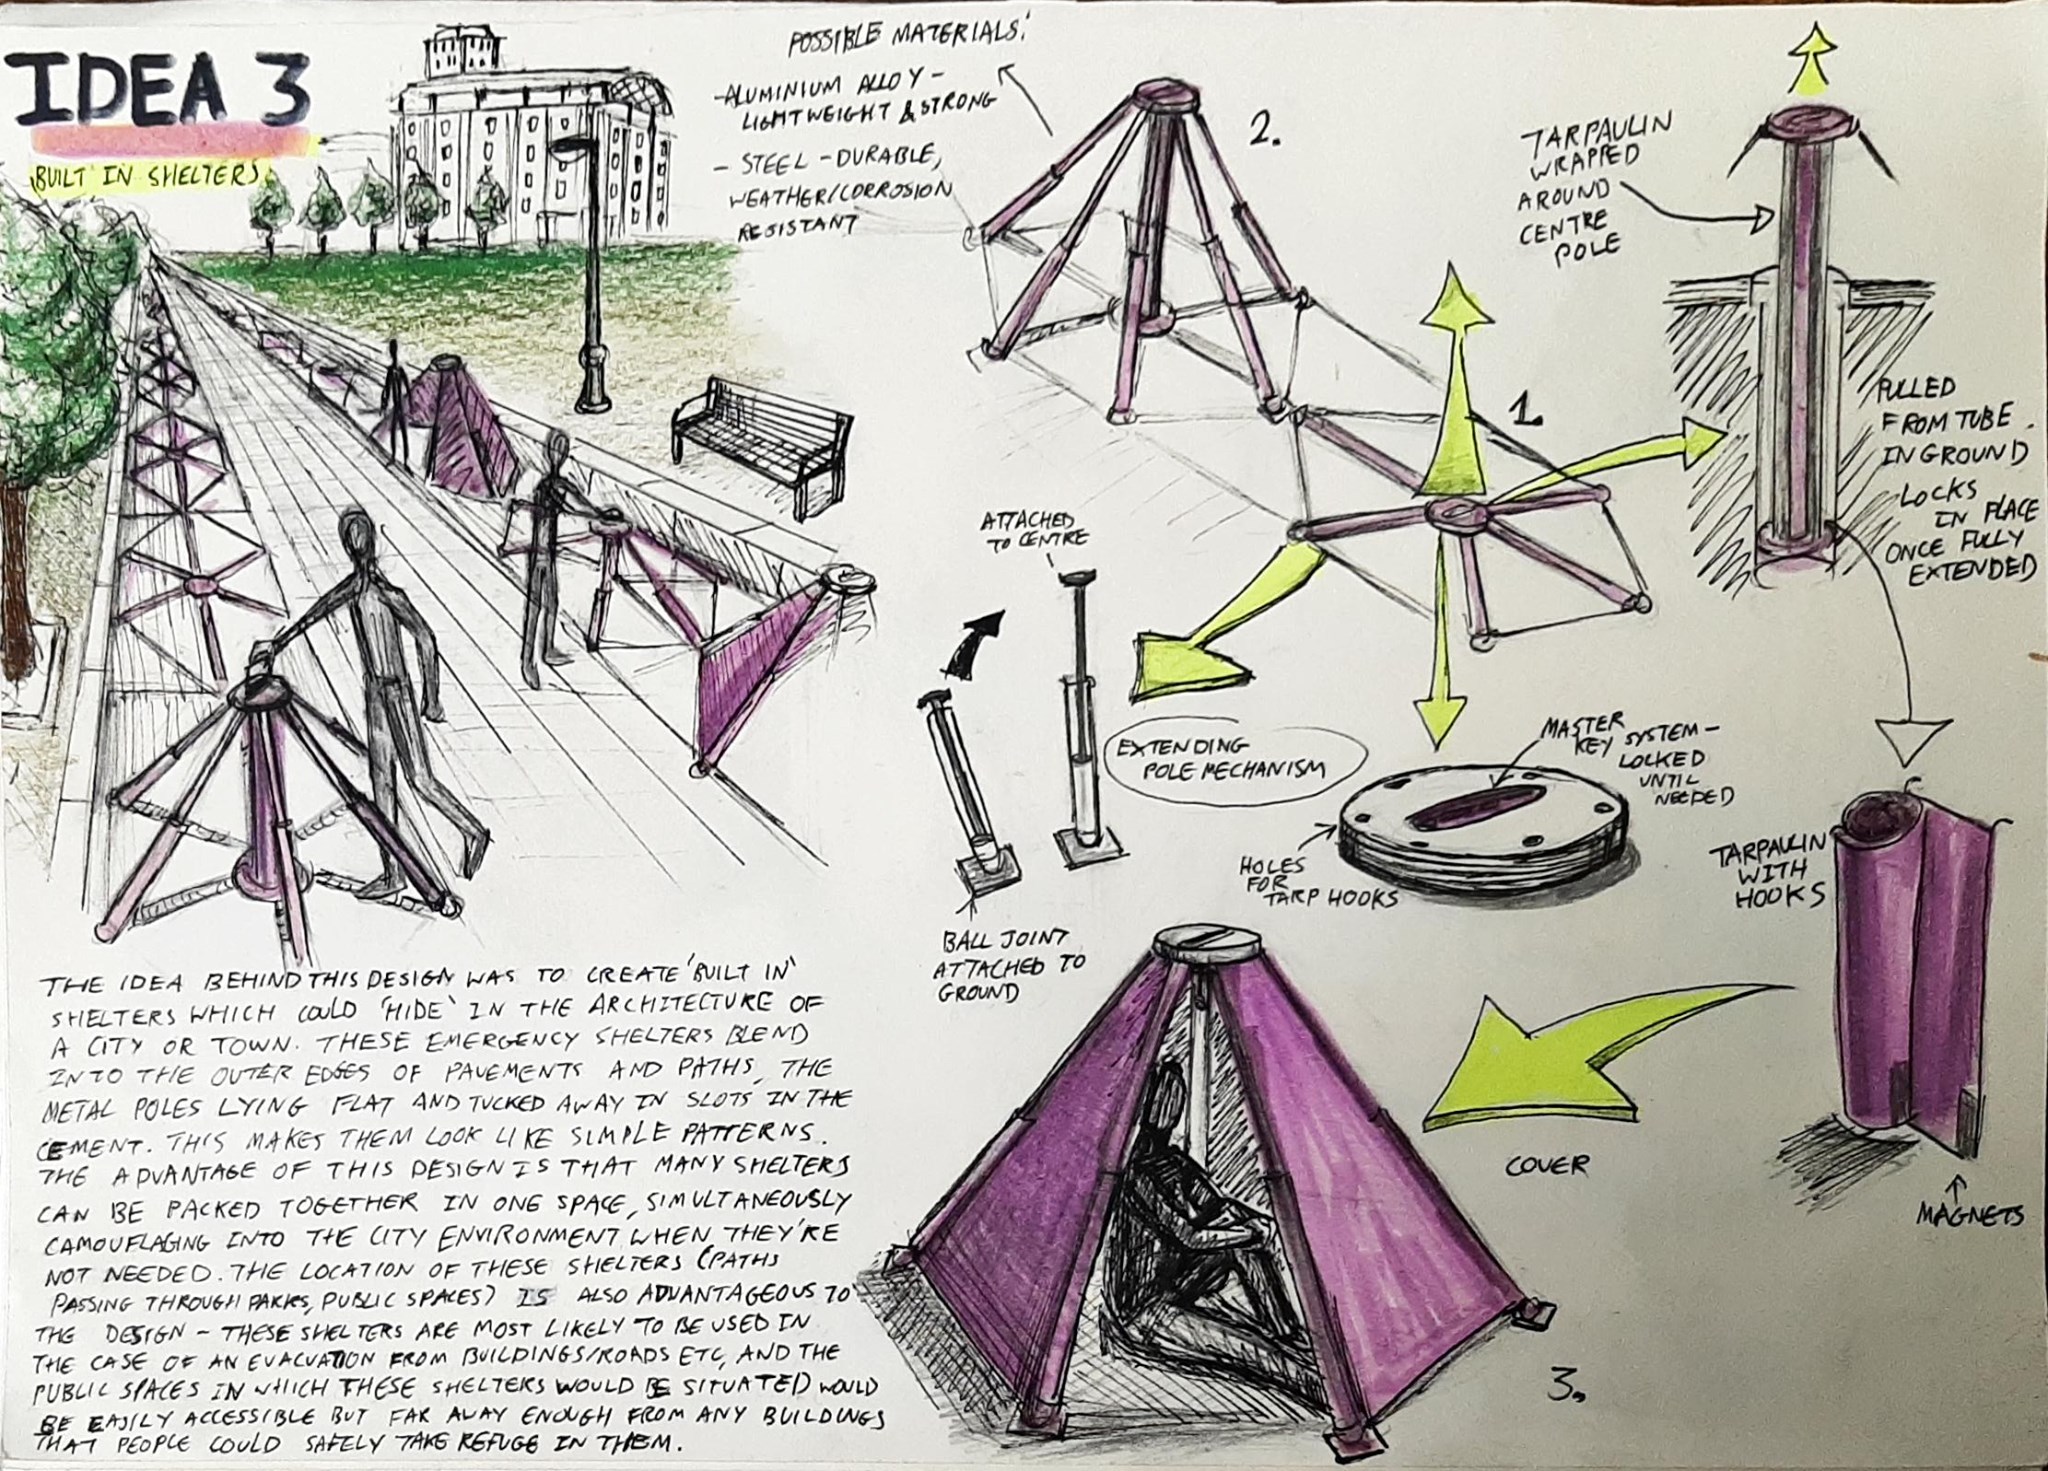 IDEA 3
BUILT IN SHELTERS
POSSIBLE MATERIALS:
-ALUMINIUM ALLOY -
LIGHTWEIGHT & STRONG
- STEEL - DURABLE,
WEATHER/CORROSION
RESISTANT
2.
TARPAULIN
WRAPPED
AROUND
CENTRE
POLE
1.
PULLED
FROM TUBE
IN GROUND
LOCKS
IN PLACE
ONCE FULLY
EXTENDED
ATTACHED
TO CENTRE
EXTENDING
POLE MECHANISM
BALL JOINT
ATTACHED TO
GROUND
MASTER
KEY SYSTEM -
LOCKED
UNTIL
NEEDED
HOLES
FOR
TARP HOOKS
TARPAULIN
WITH
HOOKS
MAGNETS
COVER
3.
THE IDEA BEHIND THIS DESIGN WAS TO CREATE 'BUILT IN'
SHELTERS WHICH COULD 'HIDE' IN THE ARCHITECTURE OF
A CITY OR TOWN. THESE EMERGENCY SHELTERS BLEND
INTO THE OUTER EDGES OF PAVEMENTS AND PATHS, THE
METAL POLES LYING FLAT AND TUCKED AWAY IN SLOTS IN THE
CEMENT. THIS MAKES THEM LOOK LIKE SIMPLE PATTERNS.
THE ADVANTAGE OF THIS DESIGN IS THAT MANY SHELTERS
CAN BE PACKED TOGETHER IN ONE SPACE, SIMULTANEOUSLY
CAMOUFLAGING INTO THE CITY ENVIRONMENT WHEN THEY'RE
NOT NEEDED. THE LOCATION OF THESE SHELTERS (PATHS
PASSING THROUGH PARKS, PUBLIC SPACES) IS ALSO ADVANTAGEOUS TO
THE DESIGN - THESE SHELTERS ARE MOST LIKELY TO BE USED IN
THE CASE OF AN EVACUATION FROM BUILDINGS/ROADS ETC, AND THE
PUBLIC SPACES IN WHICH THESE SHELTERS WOULD BE SITUATED WOULD
BE EASILY ACCESSIBLE BUT FAR AWAY ENOUGH FROM ANY BUILDINGS
THAT PEOPLE COULD SAFELY TAKE REFUGE IN THEM.